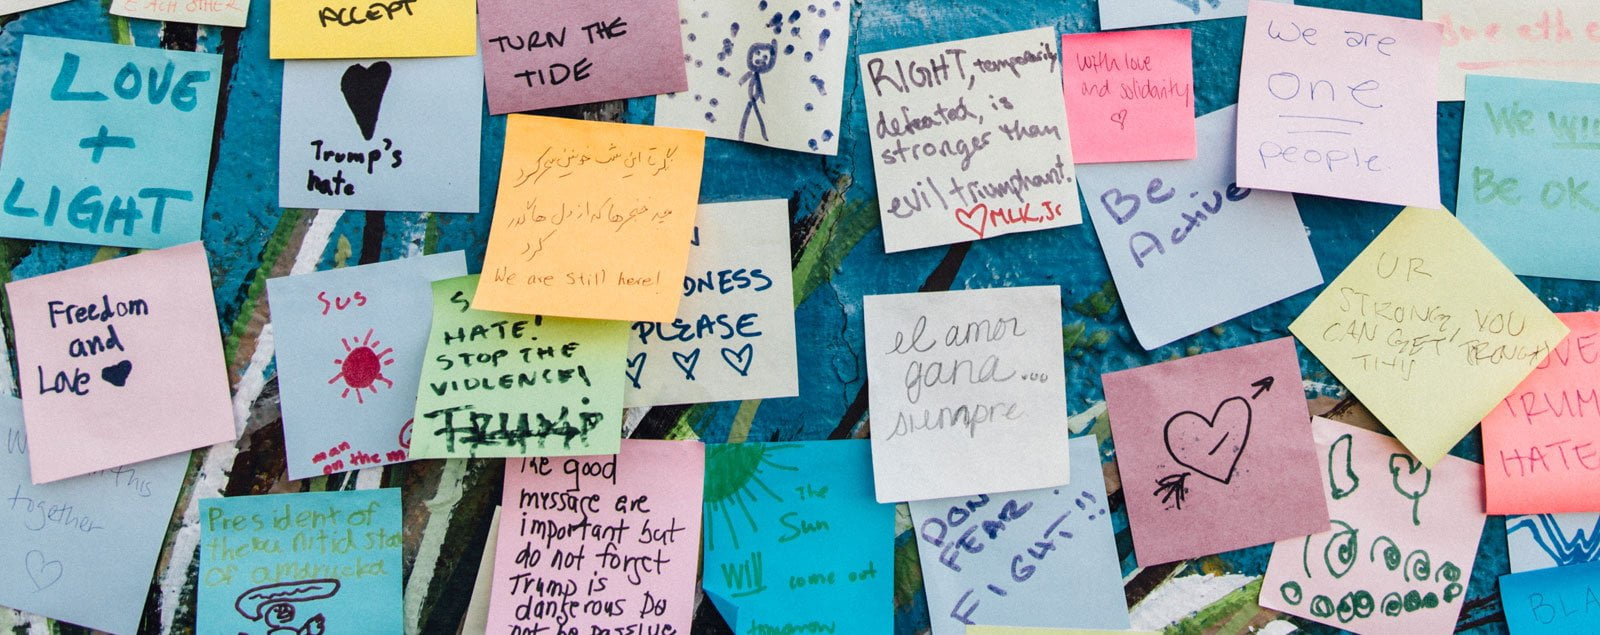 EACH OTHER
ACCEPT
TURN THE
TIDE
LOVE
+
LIGHT
Trump's
hate
RIGHT, temporarily
defeated, is
stronger than
evil triumphant.
MLK, Jr
with love
and solidarity
We are
one
people.
Be
Active
We will
Be OK
Freedom
and
Love
SUS
man
on the m
HATE!
STOP THE
VIOLENCE!
TRUMP
مگر تا این شب خونین سحر کرد
چه خنجرها که از دل‌ها گذر
کرد
We are still here!
DNESS
PLEASE
el amor
gana...
siempre
UR
STRONG, YOU
CAN GET TROUGH
THIS
VE
TRUM
HATE
this
together
President of
the
of amarucka
The good
message are
important but
do not forget
Trump is
dangerous Do
not be passive
The
Sun
will come out
tomorrow
DON
FEAR
FIGHT!!
BLA